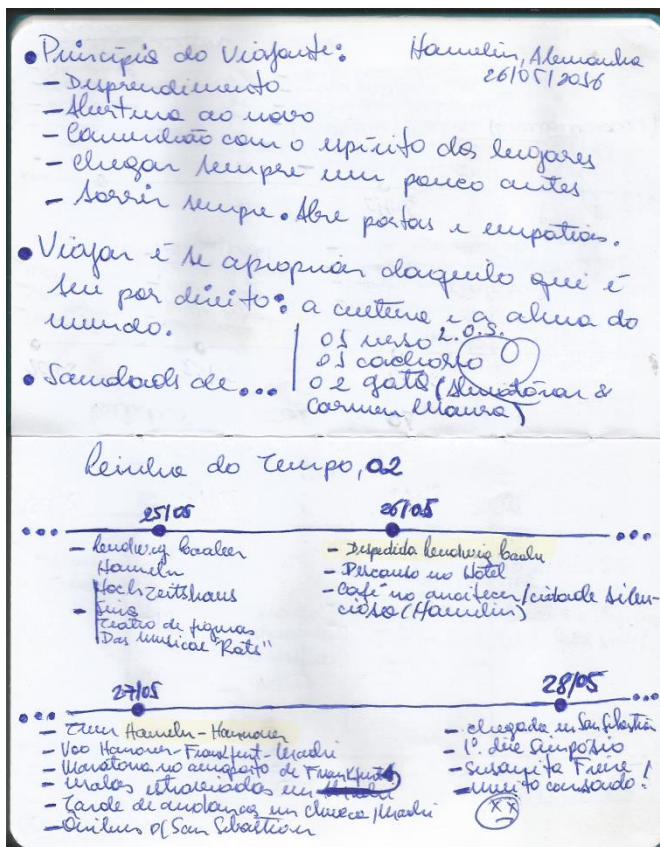 • Princípio do Viajante:
Hamelin, Alemanha
26/05/2016
- Desprendimento
- Abertura ao novo
- Comunhão com o espírito dos lugares
- Chegar sempre um pouco antes
- Sorrir sempre. Abre portas e empatias.
• Viajar é se apropriar daquilo que é
seu por direito: a cultura e a alma do
mundo.
• Saudads de...
01
01 cachorro
02 gatos (Almodóvar &
Carmen Maura)
Leinha do Tempo, 02
25/05
26/05
Hameln
Hochzeitshaus
Teatro de figuras
Das Musical "Rats"
- Despedida
- Descanso no Hotel
- Café no anoitecer/cidade silen-
ciosa (Hamelin)
27/05
28/05
- Trem Hameln-Hannover
- Voo Hanover-Frankfurt-Madri
- Maratona no aeroporto de Frankfurt
- Malas extraviadas em
- Tarde de andanças em Chueca/Madri
- Ônibus p/ San Sebastian
- Chegada em San Sebastian
- 1º. dia Simpósio
- Susanita Freire!
- muito cansado!